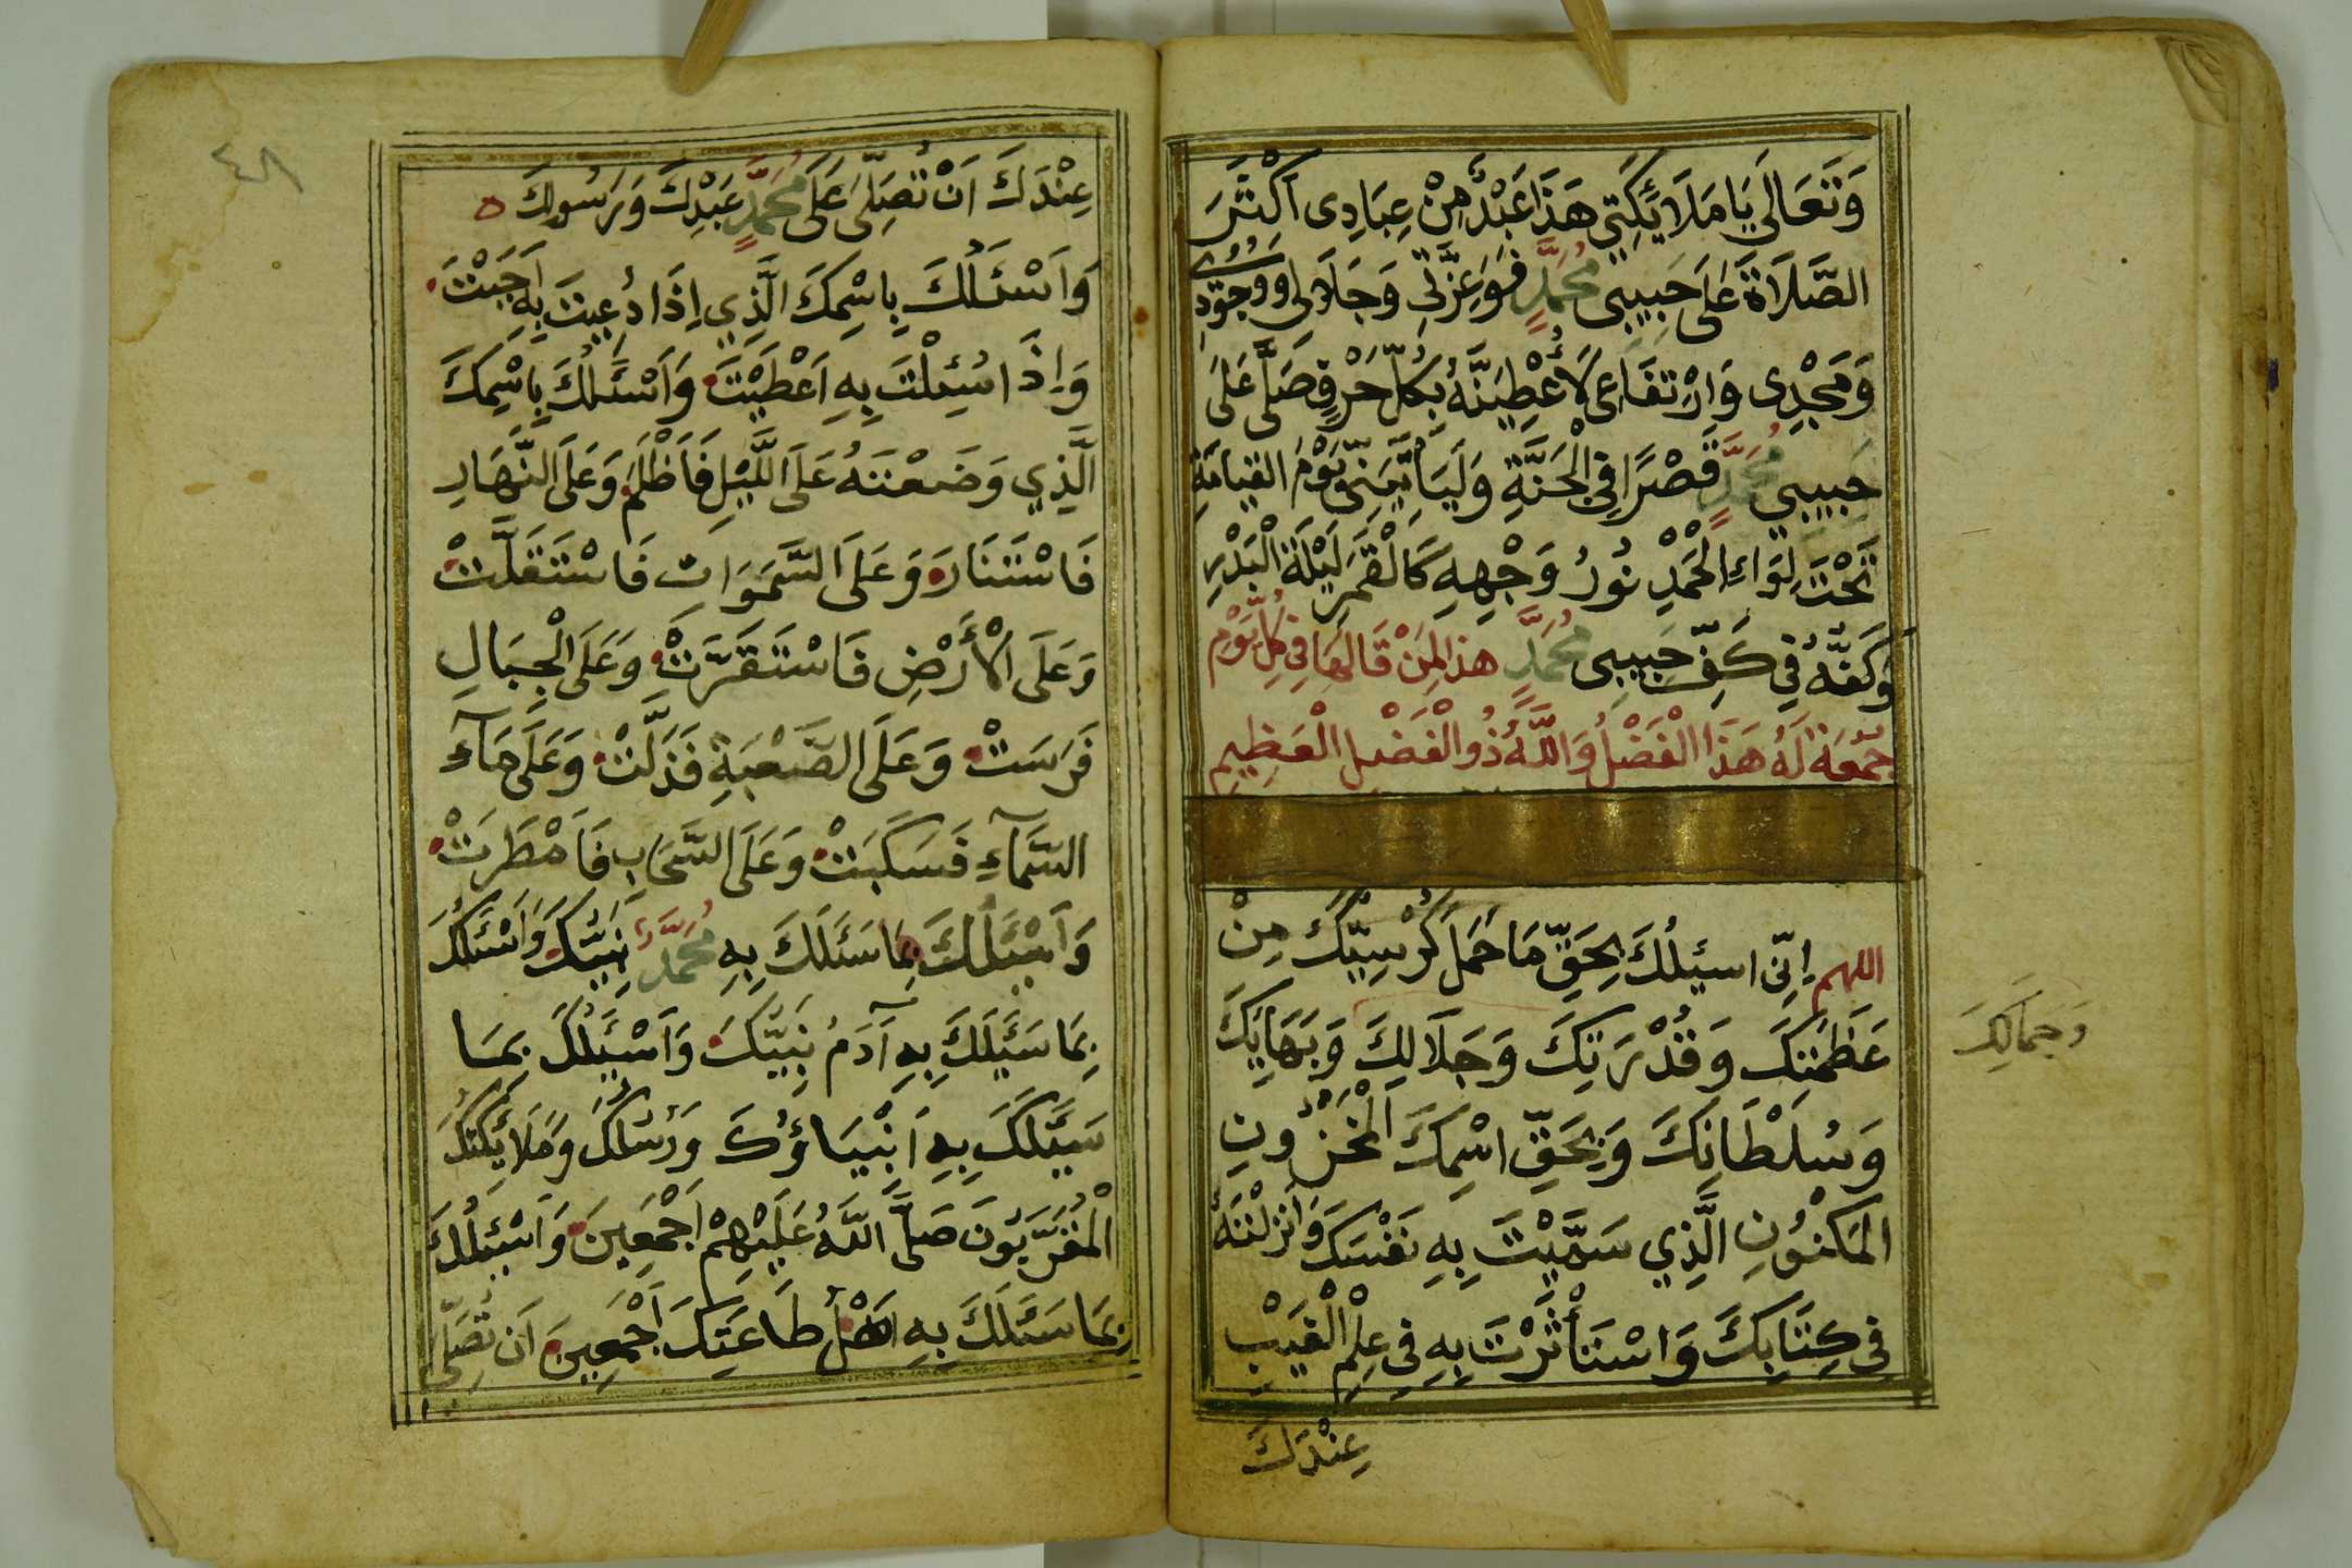 وَتَعَالَى يَا مَلَائِكَتِي هَذَا عَبْدٌ مِنْ عِبَادِي اَكْثَرَ
الصَّلَاةَ عَلَى حَبِيبِي مُحَمَّدٍ فَوَعِزَّتِي وَجَلَالِي وَوُجُودِي
وَمَجْدِي وَارْتِفَاعِي لَأُعْطِيَنَّهُ بِكُلِّ حَرْفٍ صَلَّى عَلَى
حَبِيبِي مُحَمَّدٍ قَصْرًا فِي الْجَنَّةِ وَلَيَأْتِيَنِّي يَوْمَ الْقِيَامَةِ
تَحْتَ لِوَاءِ الْحَمْدِ نُورُ وَجْهِهِ كَالْقَمَرِ لَيْلَةَ الْبَدْرِ
وَكَفُّهُ فِي كَفِّ حَبِيبِي مُحَمَّدٍ هذا لِمَنْ قَالَهَا فِي كُلِّ يَوْمِ
جُمُعَةٍ لَهُ هَذَا الْفَضْلُ وَاللَّهُ ذُو الْفَضْلِ الْعَظِيمِ
اللهم إِنِّي اسئلُكَ بِحَقِّ مَا حَمَلَ كُرْسِيُّكَ مِنْ
عَظَمَتِكَ وَقُدْرَتِكَ وَجَلَالِكَ وَبَهَائِكَ
وَجَمَالِكَ
وَسُلْطَانِكَ وَبِحَقِّ اسْمِكَ الْمَخْزُونِ
الْمَكْنُونِ الَّذِي سَمَّيْتَ بِهِ نَفْسَكَ وَاَنْزَلْتَهُ
فِي كِتَابِكَ وَاسْتَأْثَرْتَ بِهِ فِي عِلْمِ الْغَيْبِ
عِنْدَكَ
٤٨
عِنْدَكَ اَنْ تُصَلِّيَ عَلَى مُحَمَّدٍ عَبْدِكَ وَرَسُولِكَ
وَاَسْئَلُكَ بِاسْمِكَ الَّذِي اِذَا دُعِيتَ بِهِ اَجَبْتَ
وَاِذَا سُئِلْتَ بِهِ اَعْطَيْتَ وَاَسْئَلُكَ بِاسْمِكَ
الَّذِي وَضَعْتَهُ عَلَى اللَّيْلِ فَاَظْلَمَ وَعَلَى النَّهَارِ
فَاسْتَنَارَ وَعَلَى السَّمَوَاتِ فَاسْتَقَلَّتْ
وَعَلَى الْأَرْضِ فَاسْتَقَرَّتْ وَعَلَى الْجِبَالِ
فَرَسَتْ وَعَلَى الصَّعْبَةِ فَذَلَّتْ وَعَلَى مَآءِ
السَّمَآءِ فَسَكَبَتْ وَعَلَى السَّحَابِ فَاَمْطَرَتْ
وَاَسْئَلُكَ بِمَا سَئَلَكَ بِهِ مُحَمَّدٌ نَبِيُّكَ وَاَسْئَلُكَ
بِمَا سَئَلَكَ بِهِ آدَمُ نَبِيُّكَ وَاَسْئَلُكَ بِمَا
سَئَلَكَ بِهِ اَنْبِيَاؤُكَ وَرُسُلُكَ وَمَلَائِكَتُكَ
الْمُقَرَّبُونَ صَلَّى اللَّهُ عَلَيْهِمْ اَجْمَعِينَ وَاَسْئَلُكَ
بِمَا سَئَلَكَ بِهِ اَهْلُ طَاعَتِكَ اَجْمَعِينَ اَنْ تُصَلِّيَ